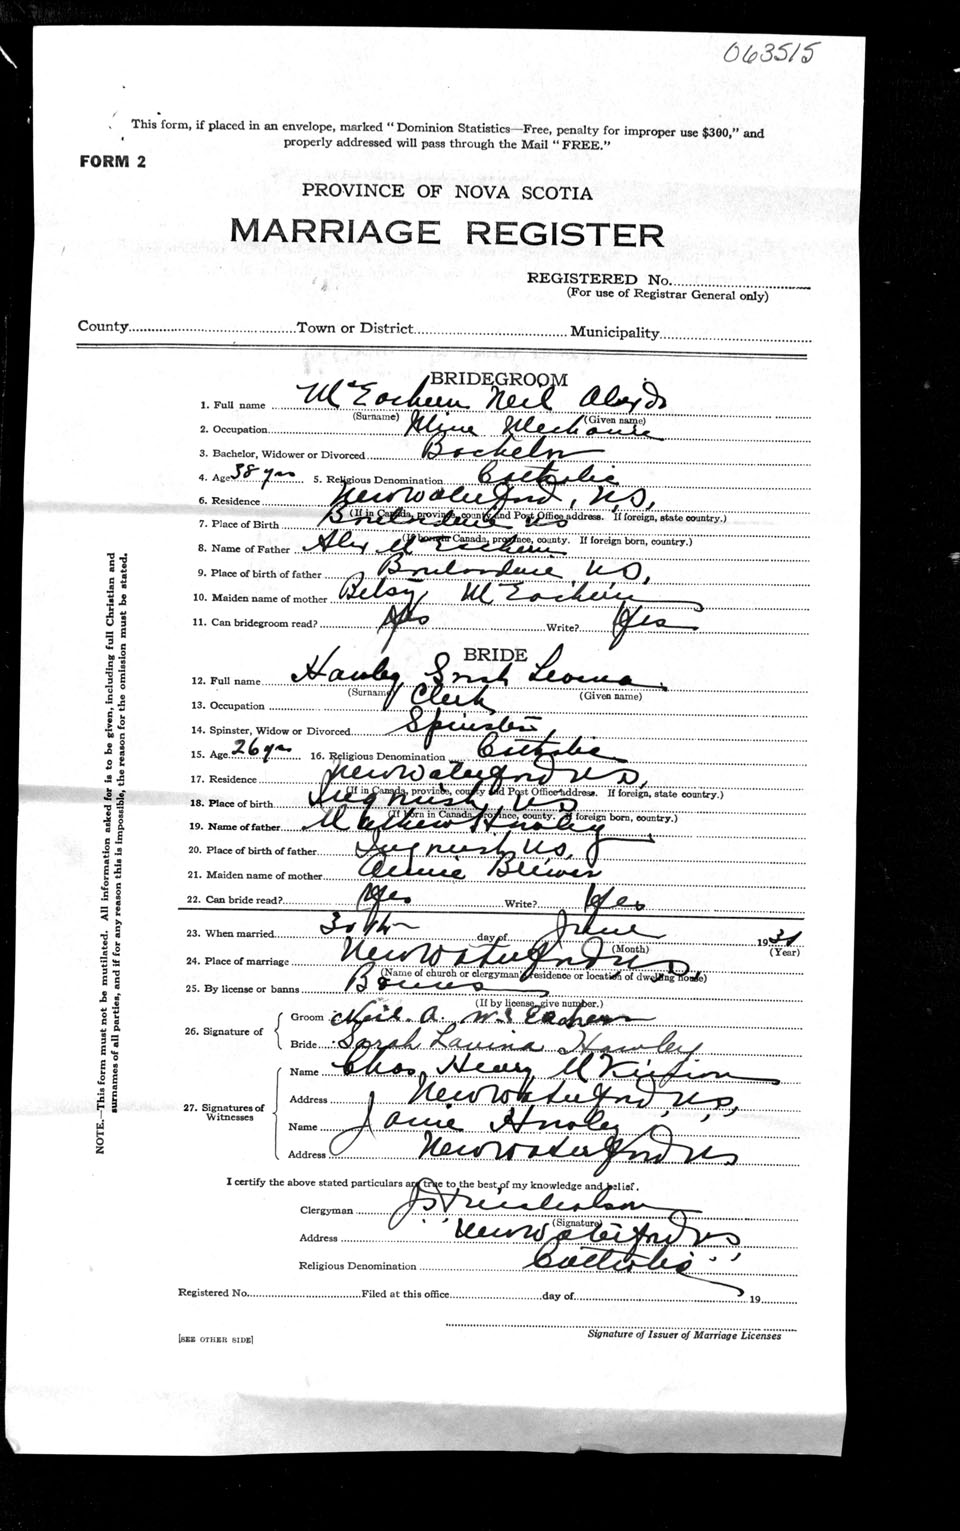 063515
This form, if placed in an envelope, marked "Dominion Statistics—Free, penalty for improper use $300," and
properly addressed will pass through the Mail "FREE."
FORM 2
PROVINCE OF NOVA SCOTIA
MARRIAGE REGISTER
REGISTERED No.
(For use of Registrar General only)
County Town or District Municipality
BRIDEGROOM
1. Full name McEachern Neil Alexdr
(Surname) (Given name)
2. Occupation Mine Mechanic
3. Bachelor, Widower or Divorced Bachelor
4. Age 38 yrs 5. Religious Denomination Catholic
6. Residence New Waterford, N.S,
(If in Canada, province, county and Post Office address. If foreign, state country.)
7. Place of Birth Boularderie NS
(If born in Canada, province, county. If foreign born, country.)
8. Name of Father Alex McEachern
9. Place of birth of father Boularderie N.S,
10. Maiden name of mother Betsy McEachern
11. Can bridegroom read? Yes Write? Yes
BRIDE
12. Full name Hawley Sarah Levina
(Surname) (Given name)
13. Occupation Clerk
14. Spinster, Widow or Divorced Spinster
15. Age 26 yrs 16. Religious Denomination Catholic
17. Residence New Waterford N S,
(If in Canada, province, county and Post Office address. If foreign, state country.)
18. Place of birth Ingonish, NS
(If born in Canada, province, county. If foreign born, country.)
19. Name of father Mathew Hawley
20. Place of birth of father Ingonish NS,
21. Maiden name of mother Annie Brewer
22. Can bride read? Yes Write? Yes
23. When married 30th day of June 1931
(Month) (Year)
24. Place of marriage New Waterford NS
(Name of church or clergyman's residence or location of dwelling house)
25. By license or banns Banns
(If by license, give number.)
26. Signature of
Groom Neil. A. McEachern
Bride Sarah Lavina Hawley
27. Signatures of Witnesses
Name Chas, Henry McKinnon
Address New Waterford, N.S,
Name Janie Hawley
Address New Waterford NS
I certify the above stated particulars are true to the best of my knowledge and belief.
Clergyman J H Nicholson
(Signature)
Address New Waterford NS
Religious Denomination Catholic
Registered No. Filed at this office day of 19
Signature of Issuer of Marriage Licenses
[SEE OTHER SIDE]
NOTE.—This form must not be mutilated. All information asked for is to be given, including full Christian and
surnames of all parties, and if for any reason this is impossible, the reason for the omission must be stated.